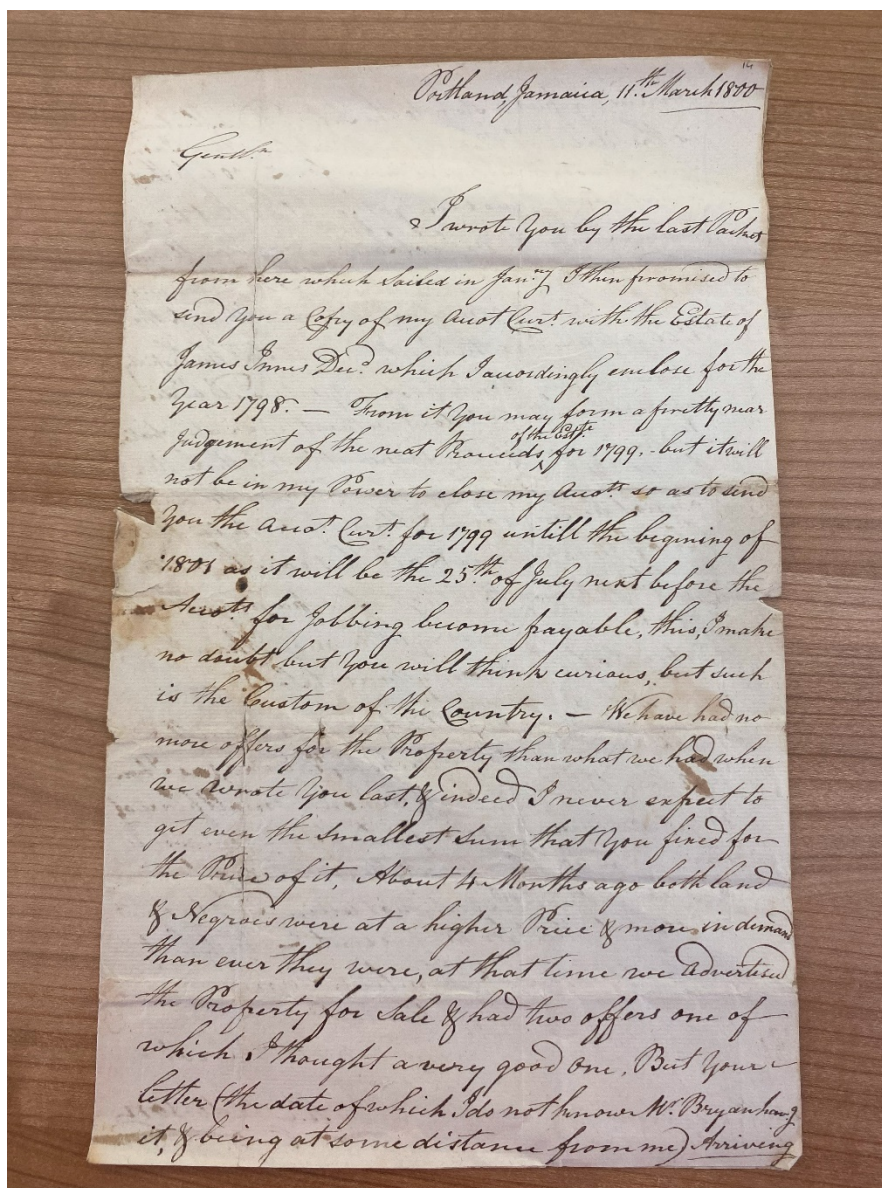 14
Portland, Jamaica, 11th March 1800
Gentn
I wrote you by the last Packet
from here which sailed in Jany I then promised to
send you a Copy of my Acot Curt with the Estate of
James Innes Decd which I acordingly enclose for the
Year 1798. — From it you may form a pretty near
of the Este
Judgement of the neat Proceeds ^ for 1799. - but it will
not be in my Power to close my Acots so as to send
you the Acot Curt for 1799 untill the begining of
1801 as it will be the 25th of July next before the
Acots for Jobbing become payable, this, I make
no doubt but you will think curious, but such
is the Custom of the Country. — We have had no
more offers for the Property than what we had when
we wrote you last, & indeed I never expect to
get even the smallest sum that you fixed for
the Price of it, About 4 Months ago both land
& Negroes were at a higher Price & more in demand
than ever they were, at that time we advertised
the Property for Sale & had two offers one of
which I thought a very good one. But your
letter (the date of which I do not know Mr Bryan havg
it, & being at some distance from me) Arriving